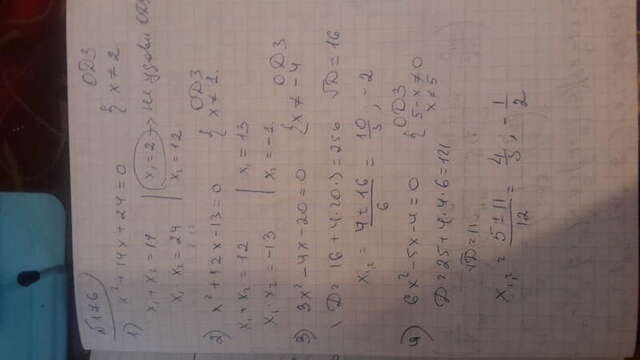 №176
1) x² + 14x + 24 = 0 ОДЗ { x ≠ 2
x₁ + x₂ = 14 | x₁ = 2 → не удовл ОДЗ
x₁ · x₂ = 24 | x₂ = 12
2) x² + 12x - 13 = 0 ОДЗ { x ≠ 1
x₁ + x₂ = 12 | x₁ = 13
x₁ · x₂ = -13 | x₂ = -1
3) 3x² - 4x - 20 = 0 ОДЗ { x ≠ -4
D = 16 + 4·20·3 = 256 √D = 16
x₁,₂ = 4 ± 16 / 6 = 10/3 , -2
4) 6x² - 5x - 4 = 0 ОДЗ { 5 - x ≠ 0 x ≠ 5
D = 25 + 4·4·6 = 121
√D = 11
x₁,₂ = 5 ± 11 / 12 = 4/3 , -1/2